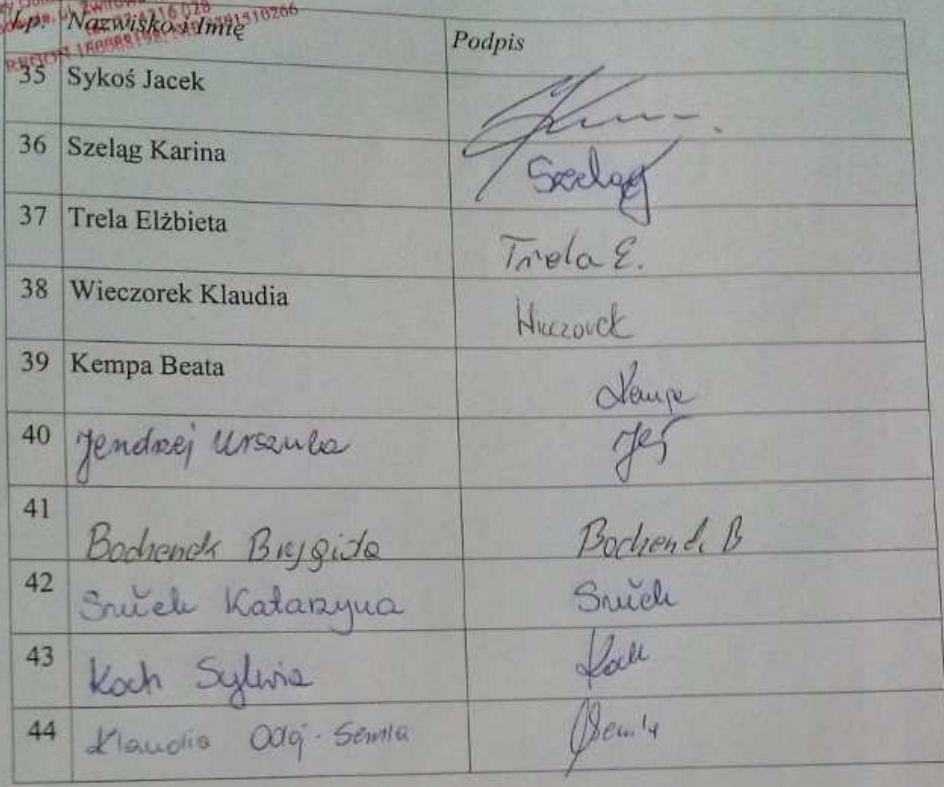 Lp. Nazwisko i Imię Podpis
35 Sykoś Jacek
36 Szeląg Karina Szeląg
37 Trela Elżbieta Trela E.
38 Wieczorek Klaudia Wieczorek
39 Kempa Beata Kempa
40 Jendrzej Urszula Jej
41 Bochenek Brygida Bochenek B
42 Katarzyna
43 Koch Sylwia Koch
44 Klaudia Semla Semla